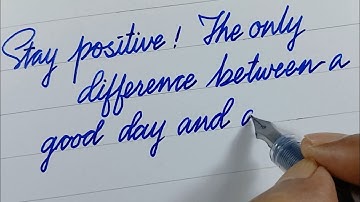 Stay positive! The only
difference between a
good day and a